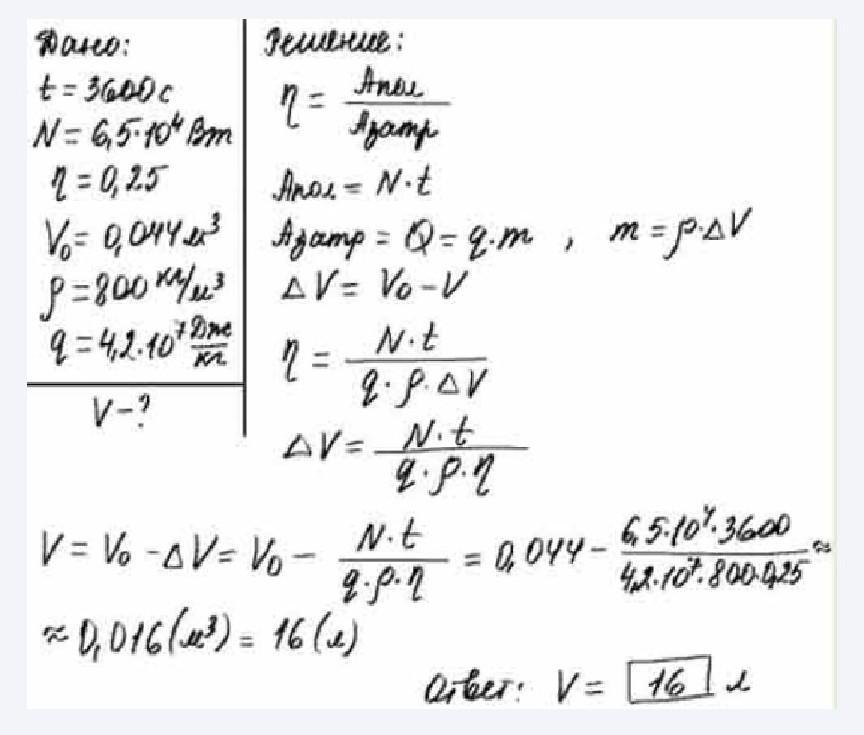 Дано:
t = 3600 с
N = 6,5·10⁴ Вт
η = 0,25
V₀ = 0,044 м³
ρ = 800 кг/м³
q = 4,2·10⁷ Дж/кг
V - ?
Решение:
η = Aпол / Aзатр
Aпол = N·t
Aзатр = Q = q·m , m = ρ·ΔV
ΔV = V₀ - V
η = N·t / q·ρ·ΔV
ΔV = N·t / q·ρ·η
V = V₀ - ΔV = V₀ - N·t / q·ρ·η = 0,044 - 6,5·10⁴·3600 / 4,2·10⁷·800·0,25 ≈
≈ 0,016 (м³) = 16 (л)
Ответ: V = 16 л